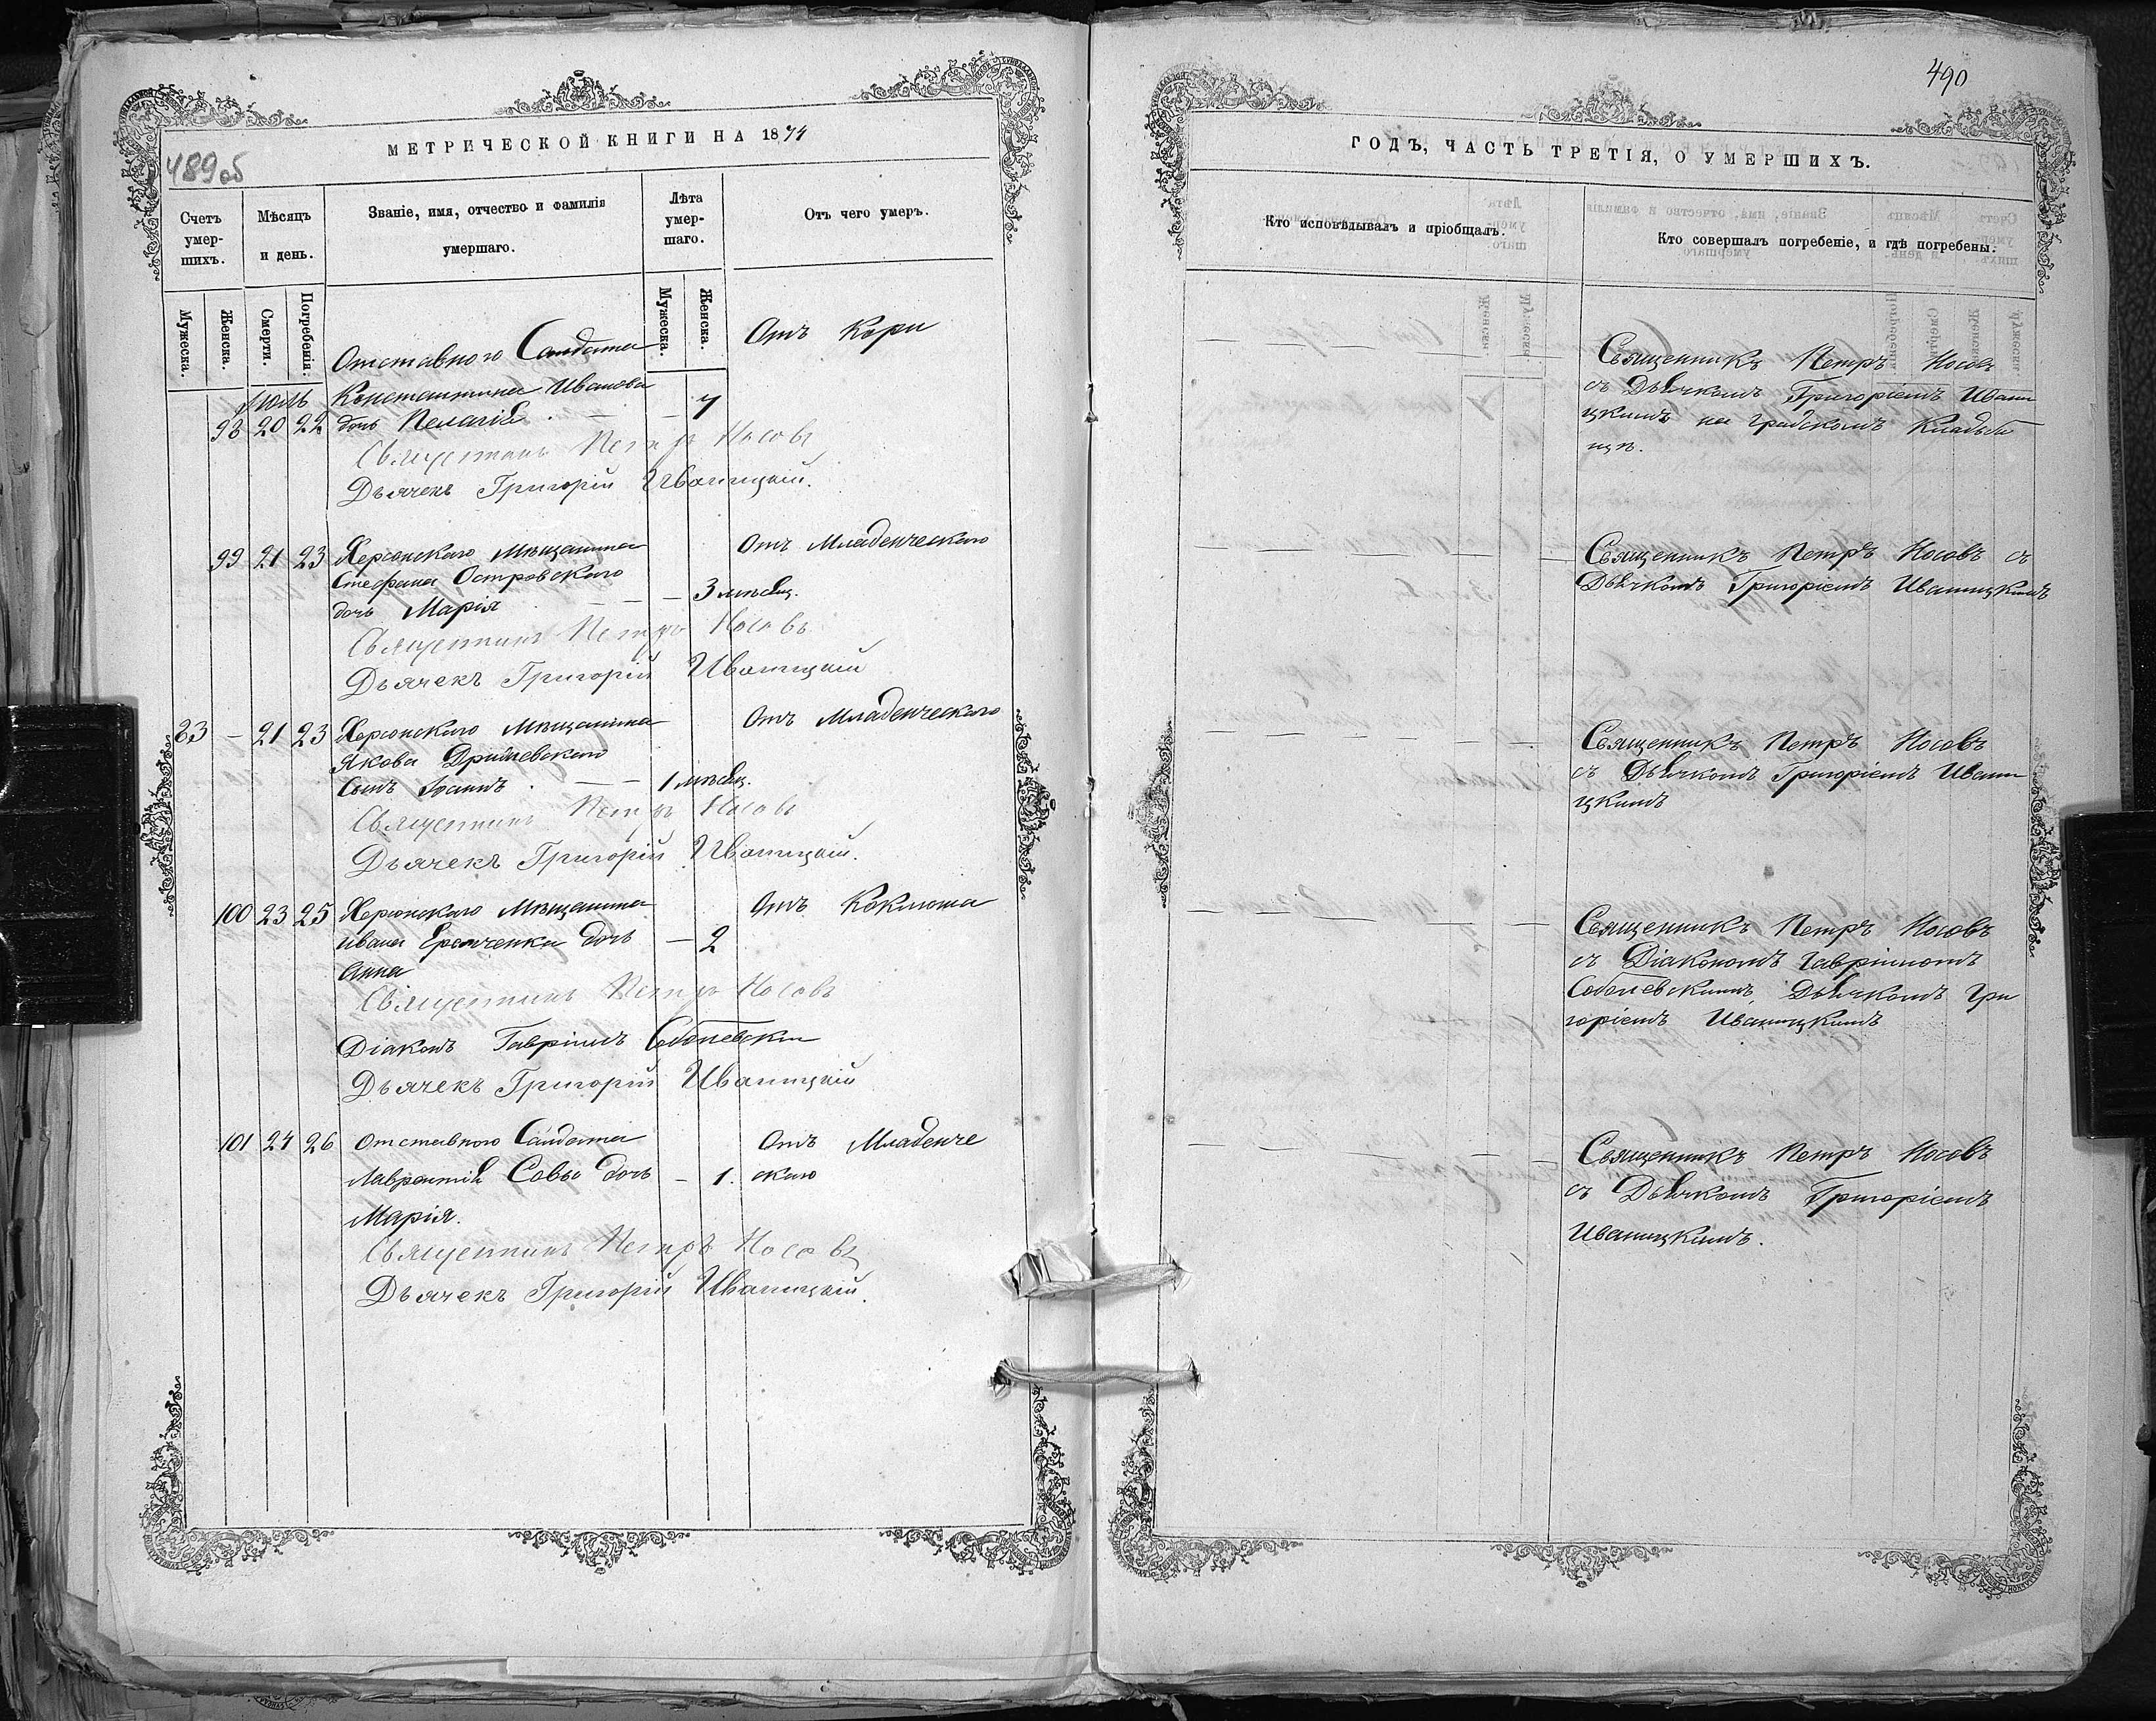 МЕТРИЧЕСКОЙ КНИГИ НА 1874
489об
Счетъ умерших.
Мѣсяцъ и день.
Званіе, имя, отчество и фамилія умершаго.
Лѣта умершаго.
Отъ чего умеръ.
Мужеска.
Женска.
Смерти.
Погребенія.
Мужеска.
Женска.
Іюль
Отставного Солдата Отъ Кори
Константина Иванова
98 20 22 дочь Пелагія. — — 7
Священникъ Петръ Носовъ
Дьячекъ Григорій Иваницкій.
99 21 23 Херсонскаго Мѣщанина Отъ Младенческаго
Стефана Островскаго
дочь Марія. — — — 3 мѣсяц.
Священникъ Петръ Носовъ
Дьячекъ Григорій Иваницкій
83 — 21 23 Херсонскаго Мѣщанина Отъ Младенческаго
Якова
Сынъ Іоаннъ. — — 1 мѣсяц.
Священникъ Петръ Носовъ
Дьячекъ Григорій Иваницкій.
100 23 25 Херсонскаго Мѣщанина Отъ Коклюша
Ивана Еремченки дочь — 2
Анна
Священникъ Петръ Носовъ
Діаконъ Гавріилъ Соболевскій
Дьячекъ Григорій Иваницкій
101 24 26 Отставного Солдата Отъ Младенче
Лаврентія Совы дочь — 1. скаго
Марія.
Священникъ Петръ Носовъ
Дьячекъ Григорій Иваницкій.
490
ГОДЪ, ЧАСТЬ ТРЕТІЯ, О УМЕРШИХЪ.
Кто исповѣдывалъ и пріобщалъ.
Кто совершалъ погребеніе, и гдѣ погребены.
Священникъ Петръ Носовъ
съ Дьячкомъ Григоріемъ Ивани
цкимъ на градскомъ Кладби
щѣ.
Священникъ Петръ Носовъ съ
Дьячкомъ Григоріемъ Иваницкимъ
Священникъ Петръ Носовъ
съ Дьячкомъ Григоріемъ Ивани
цкимъ
Священникъ Петръ Носовъ
съ Діакономъ Гавріиломъ
Соболевскимъ, Дьячкомъ Гри
горіемъ Иваницкимъ
Священникъ Петръ Носовъ
съ Дьячкомъ Григоріемъ
Иваницкимъ.